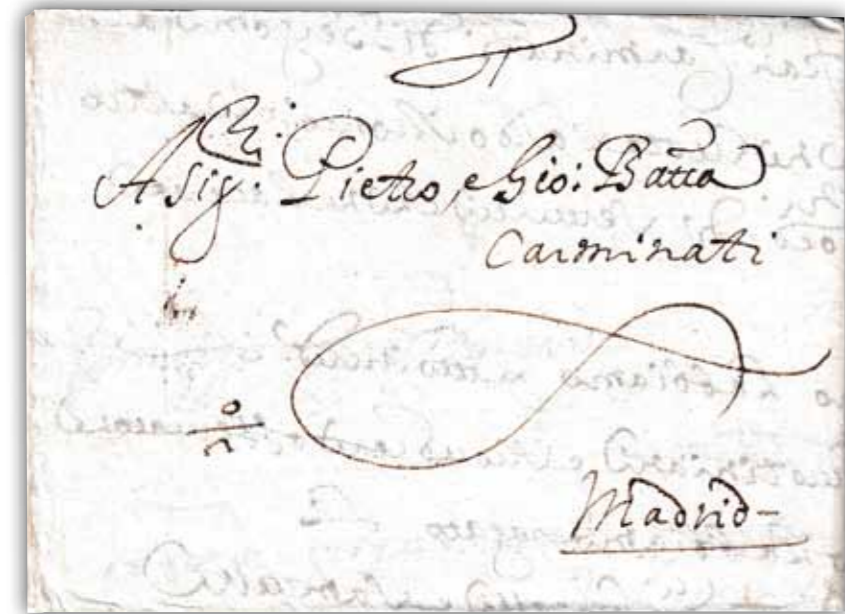 A Sig:ri Pietro, e Gio: Batta
Carminati
Madrid